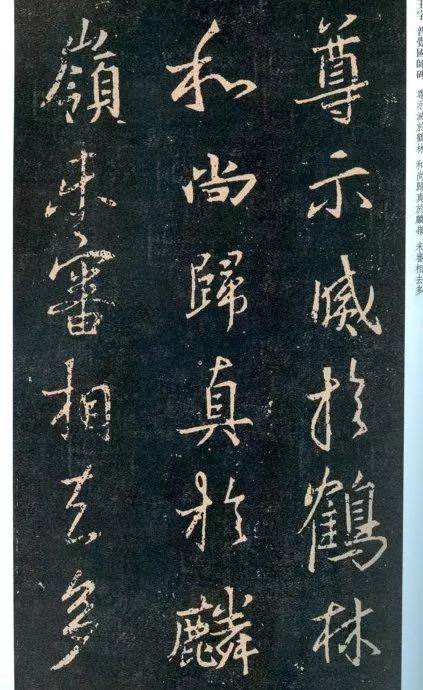 尊示滅於鶴林
和尚歸真於麟
嶺未審相去多
王字 普覺國師碑 尊示滅於鶴林 和尚歸真於麟嶺 未審相去多